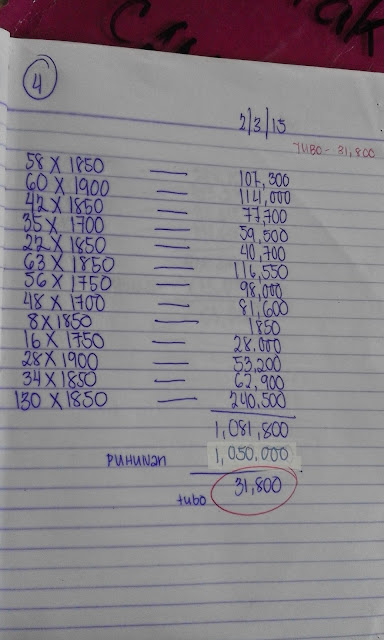 4
2/3/15
TUBO - 31,800
58 X 1850 — 107,300
60 X 1900 — 114,000
42 X 1850 — 77,700
35 X 1700 — 59,500
22 X 1850 — 40,700
63 X 1850 — 116,550
56 X 1750 — 98,000
48 X 1700 — 81,600
8 X 1850 — 1850
16 X 1750 — 28,000
28 X 1900 — 53,200
34 X 1850 — 62,900
130 X 1850 — 240,500
1,081,800
PUHUNAN 1,050,000
tubo 31,800